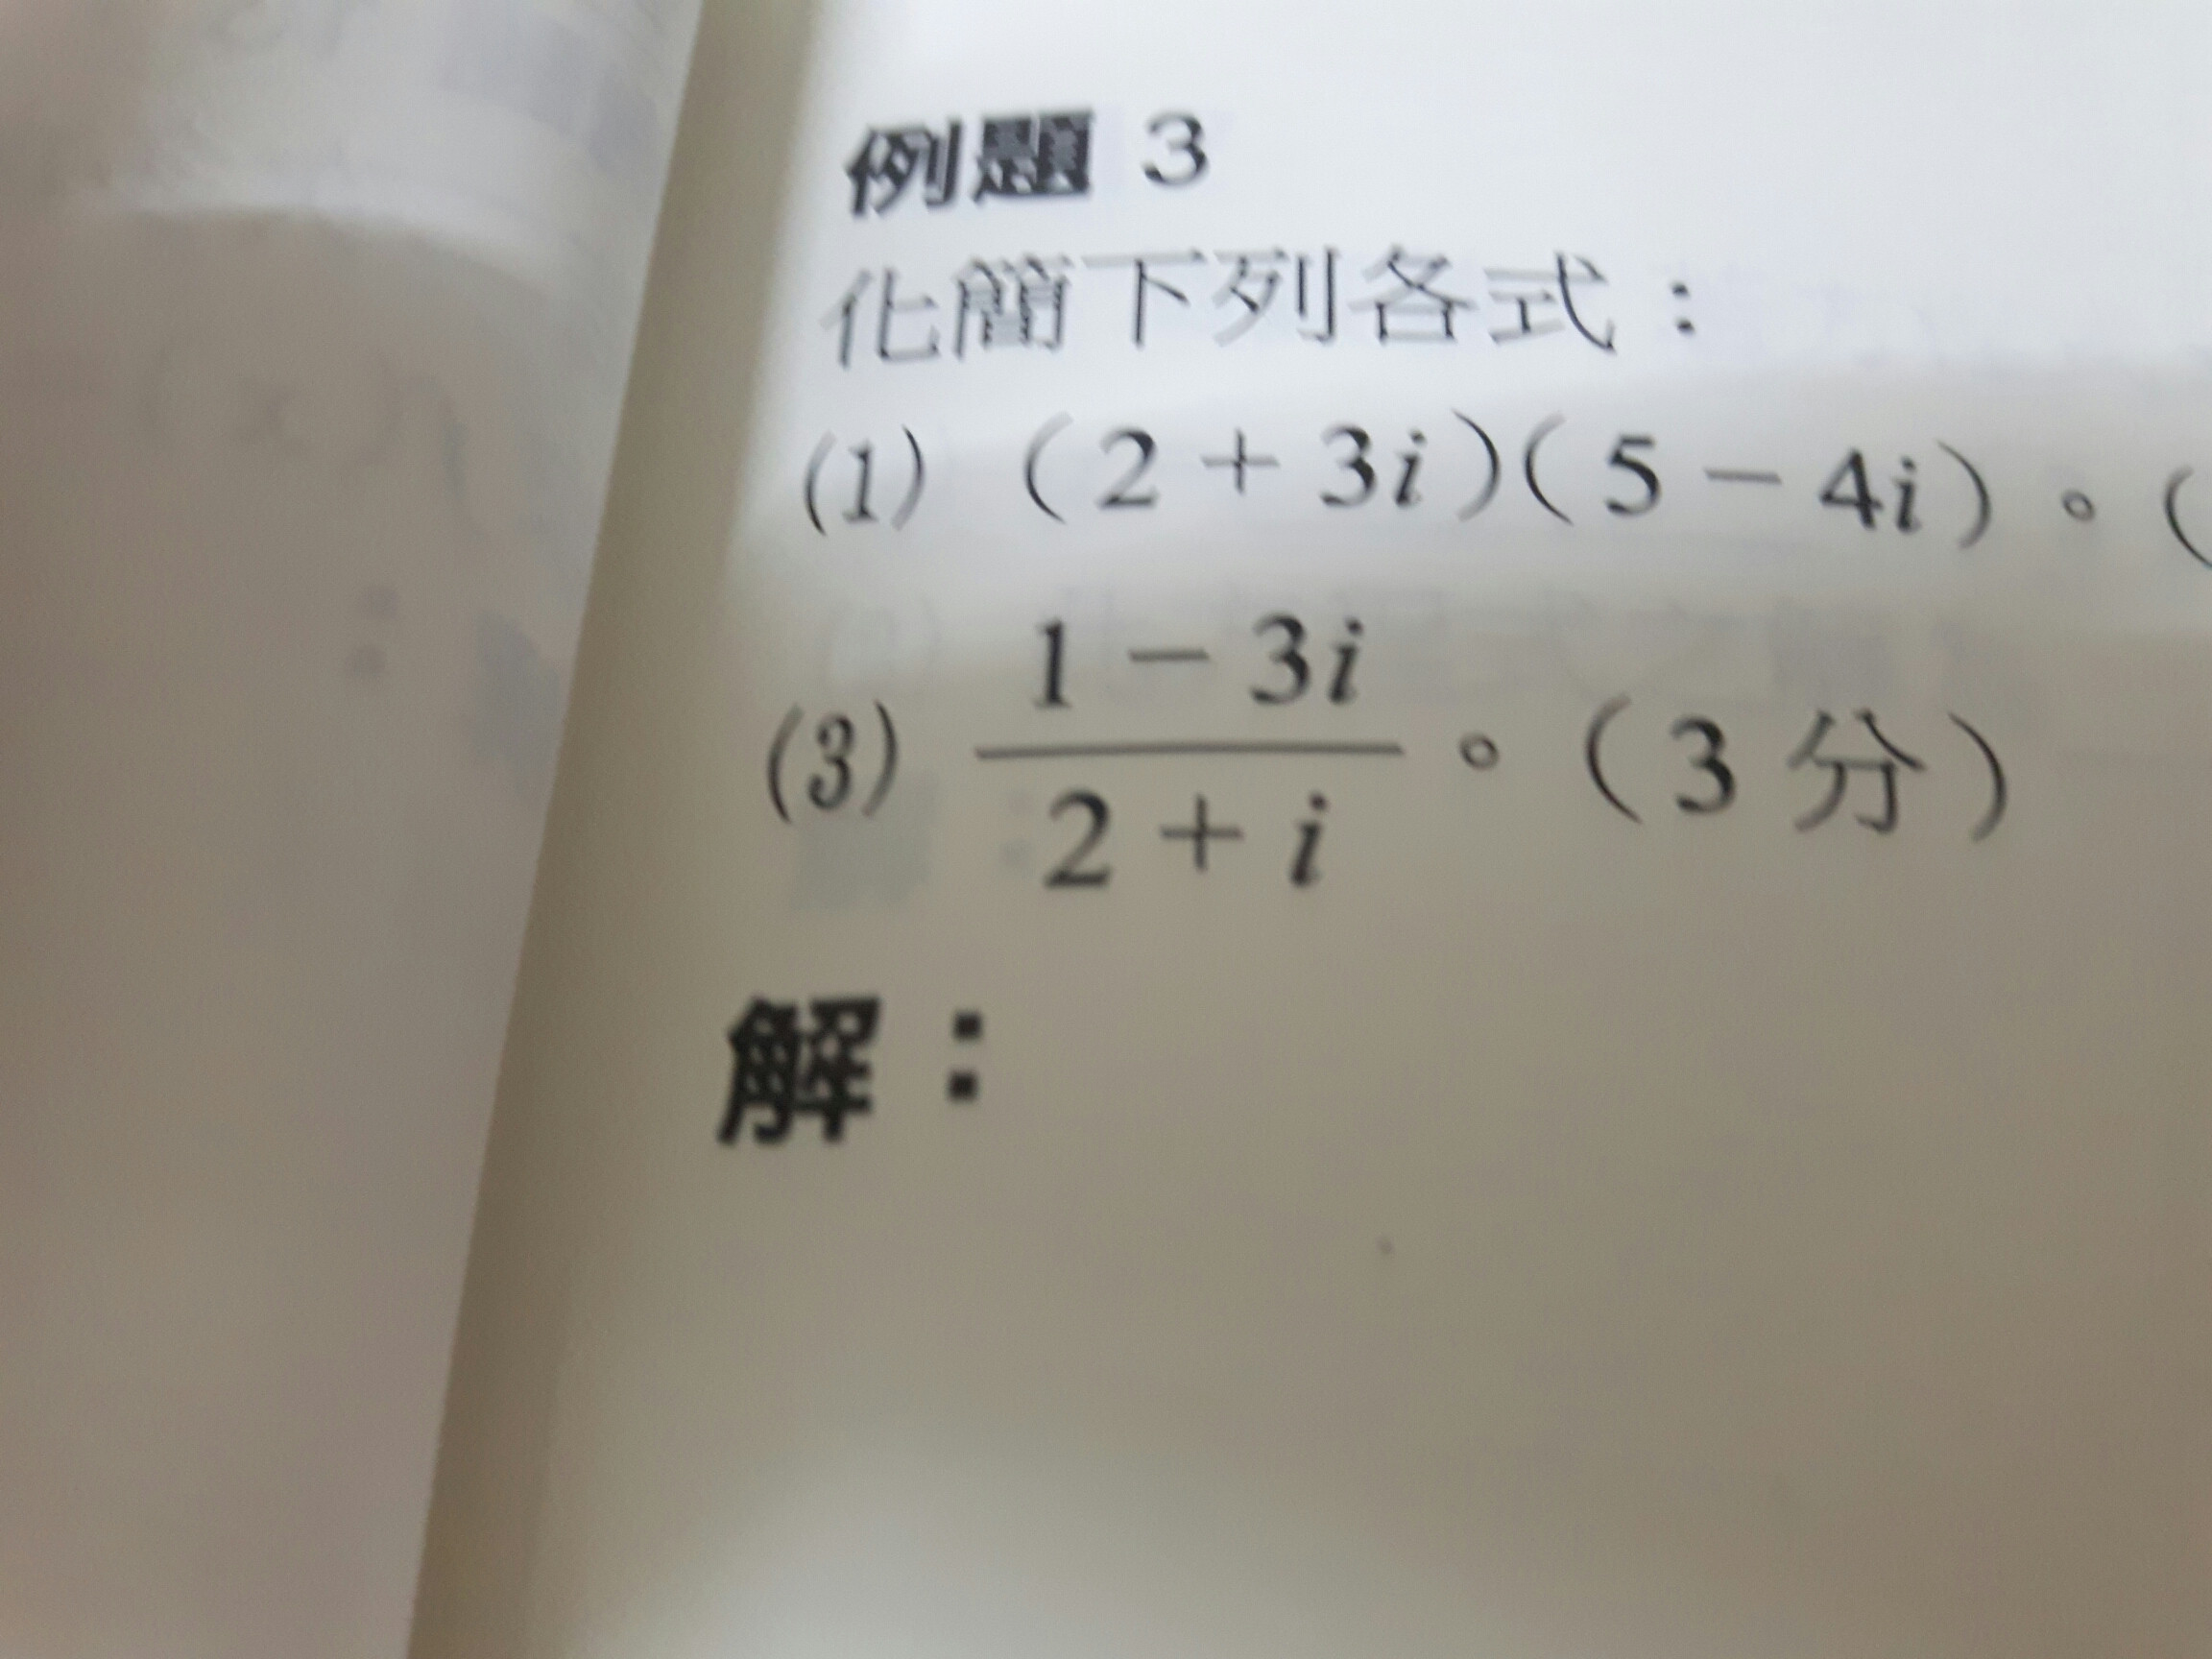 例題 3
化簡下列各式：
(1) （2 + 3i）（5 − 4i）。（
(3) \frac{1 − 3i}{2 + i}。（3 分）
解：